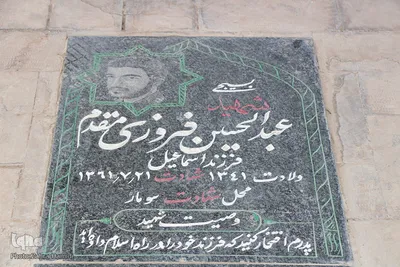 بسیجی
شهید
عبدالحسین فیروزی مقدم
فرزند اسماعیل
ولادت ۱۳۴۱ شهادت ۱۳۶۱٫۷٫۲۱
محل شهادت سومار
وصیت شهید
پدرم افتخار کنید که فرزند خود را در راه اسلام داده‌اید